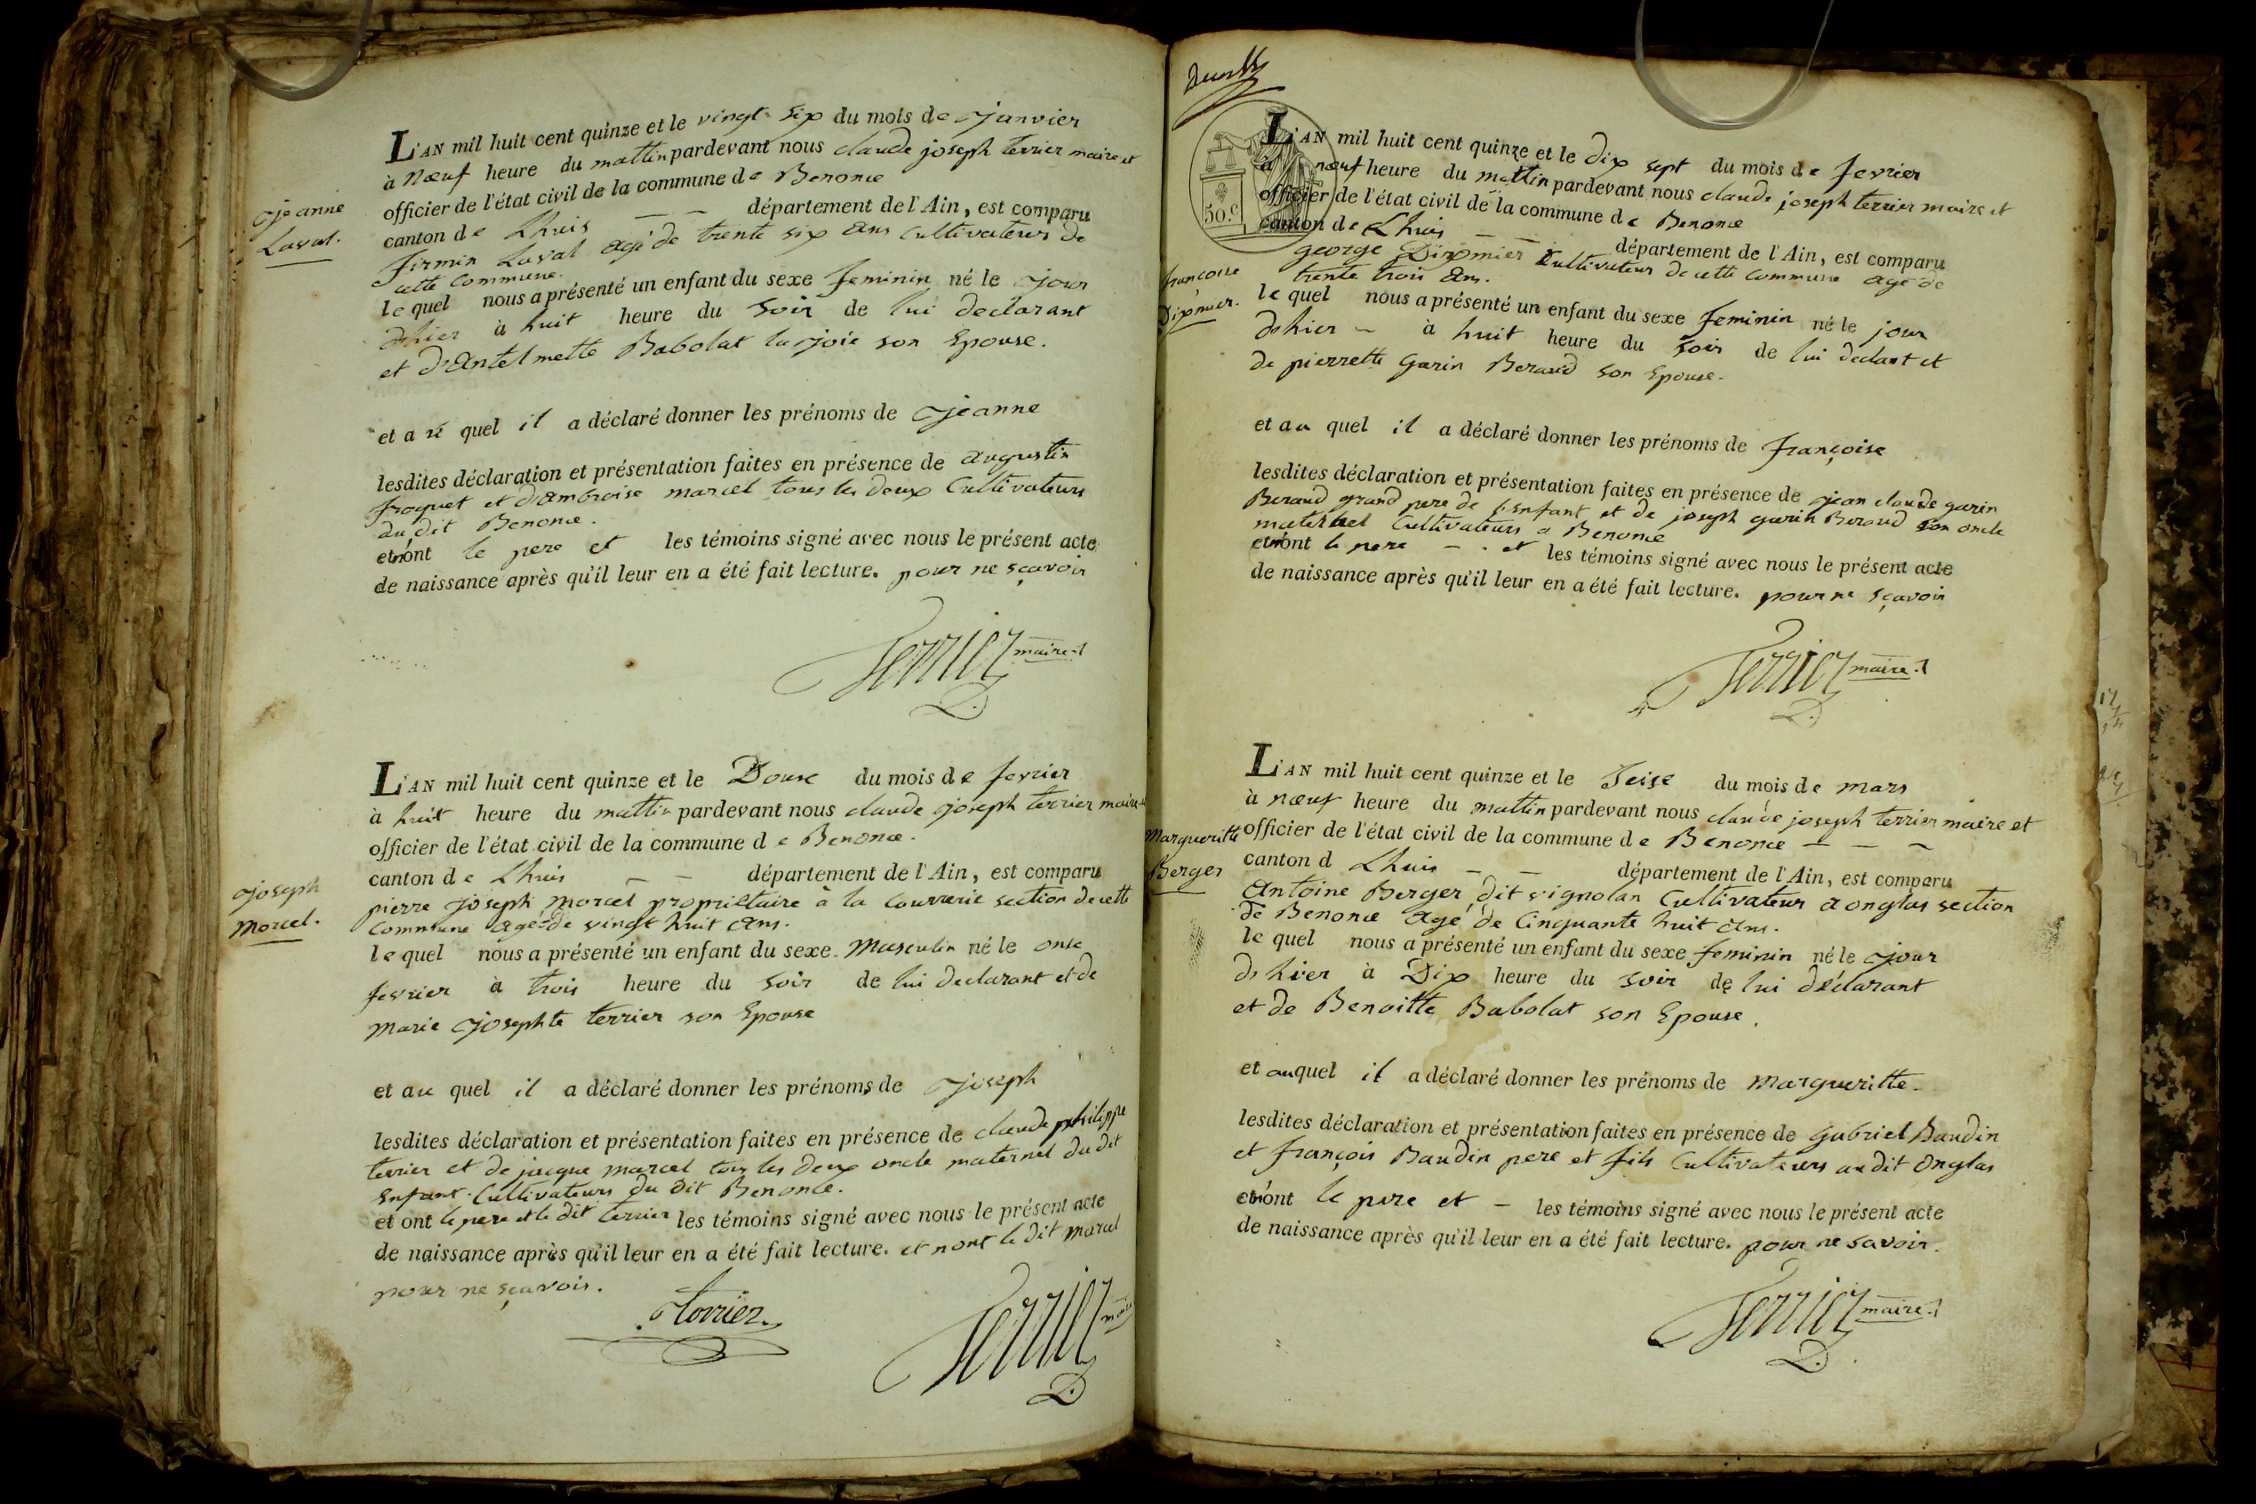 L'AN mil huit cent quinze et le vingt six du mois de janvier
à nœuf heure du mattin pardevant nous claude joseph terrier maire et
officier de l'état civil de la commune de Benonce
canton de Lhuis — — département de l'Ain, est comparu
firmin Laval agé de trente six ans cultivateurs de
cette commune.
le quel nous a présenté un enfant du sexe feminin né le jour
dhier à huit heure du soir de lui declarant
et d'Antelmette Babolat la joie son Epouse.
et au quel il a déclaré donner les prénoms de jeanne
lesdites déclaration et présentation faites en présence de augustin
froquet et d'ambroise marcel tous les deux Cultivateurs
du dit Benonce.
et n'ont le pere et les témoins signé avec nous le présent acte
de naissance après qu'il leur en a été fait lecture. pour ne sçavoir
Terrier maire
jeanne
Laval.
L'AN mil huit cent quinze et le Douse du mois de fevrier
à huit heure du mattin pardevant nous claude joseph terrier maire
officier de l'état civil de la commune de Benonce.
canton de Lhuis — — département de l'Ain, est comparu
pierre joseph marcel propriétaire à la courrerie section de cette
Commune agé de vingt huit ans.
le quel nous a présenté un enfant du sexe Masculin né le onse
fevrier à trois heure du soir de lui declarant et de
marie josephte terrier son Epouse
et au quel il a déclaré donner les prénoms de joseph
lesdites déclaration et présentation faites en présence de claude philippe
terrier et de jacque marcel tous les deux oncle maternel du dit
Enfant. Cultivateurs du dit Benonce.
et ont le pere et le dit terrier les témoins signé avec nous le présent acte
de naissance après qu'il leur en a été fait lecture. et nont le dit marcel
pour ne sçavoir.
Terrier
Terrier
joseph
Marcel.
50.c
L'AN mil huit cent quinze et le Dix sept du mois de fevrier
à nœuf heure du mattin pardevant nous claude joseph terrier maire et
officier de l'état civil de la commune de Benonce
canton de Lhuis — — département de l'Ain, est comparu
george Dixmier Cultivateur de cette commune agé de
trente trois ans.
le quel nous a présenté un enfant du sexe feminin né le jour
dhier — à huit heure du soir de lui declant et
de pierrette Garin Beraud son Epouse.
et au quel il a déclaré donner les prénoms de françoise
lesdites déclaration et présentation faites en présence de jean claude garin
Beraud grand pere de l'enfant et de joseph garin Beraud son oncle
maternel Cultivateurs a Benonce
et n'ont le pere — et les témoins signé avec nous le présent acte
de naissance après qu'il leur en a été fait lecture. pour ne sçavoir
Terrier maire
françoise
Dixmier.
L'AN mil huit cent quinze et le Seise du mois de mars
à nœuf heure du mattin pardevant nous claude joseph terrier maire et
officier de l'état civil de la commune de Benonce — — —
canton d Lhuis — — département de l'Ain, est comparu
Antoine Berger dit vignolan Cultivateur a onglas section
de Benonce agé de Cinquante huit ans.
le quel nous a présenté un enfant du sexe feminin né le jour
dhier à Dix heure du soir de lui déclarant
et de Benoitte Babolat son Epouse.
et auquel il a déclaré donner les prénoms de Margueritte.
lesdites déclaration et présentation faites en présence de Gabriel Baudin
et françois Baudin pere et fils Cultivateurs au dit Onglas
et n'ont le pere et — les témoins signé avec nous le présent acte
de naissance après qu'il leur en a été fait lecture. pour ne savoir.
Terrier maire
Margueritte
Berger